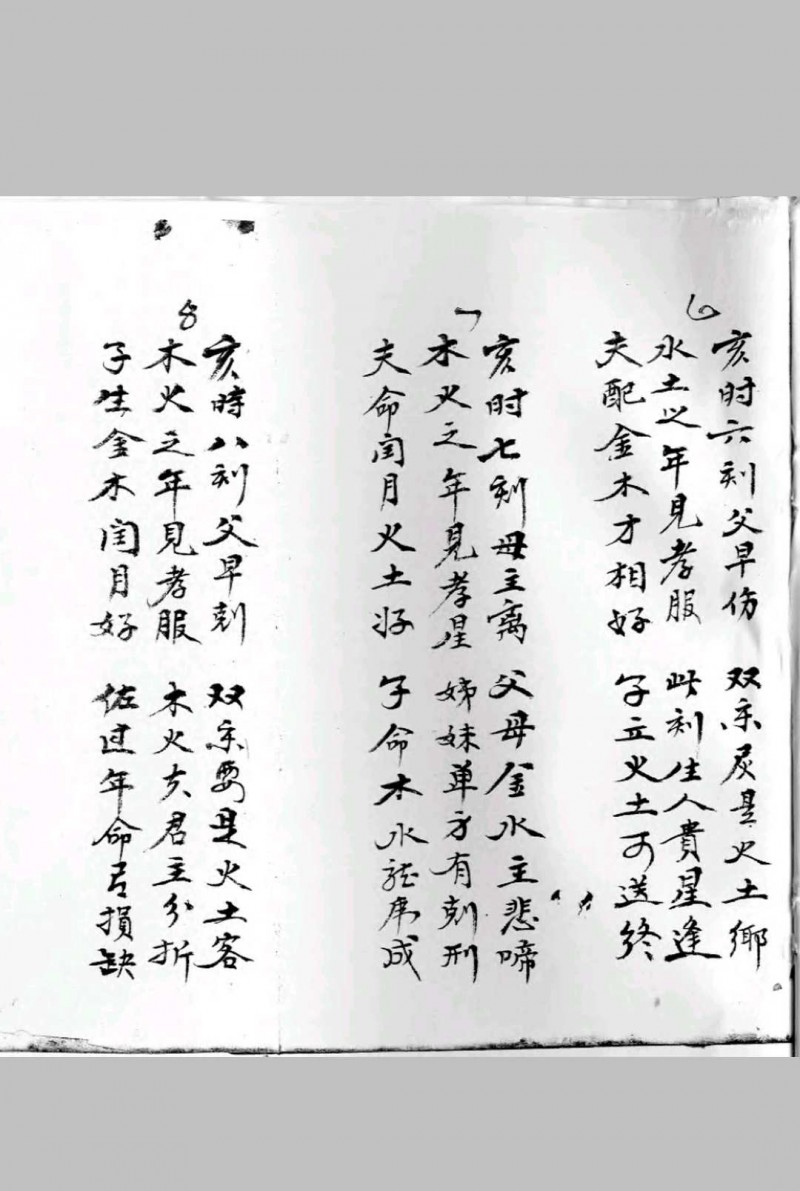 6
亥时六刻父早伤 双亲灰是火土鄉
水土之年見孝服 此刻生人貴星逢
夫配金木才相好 子立火土可送终
7
亥时七刻母主离 父母金水主悲啼
木火之年見孝星 姊妹单方有尅刑
夫命闰月火土好 子命木水龍虎成
8
亥時八刻父早尅 双亲要是火土客
木火之年見孝服 木火夫君主分折
子生金木闰月好 佐过年命呂損缺